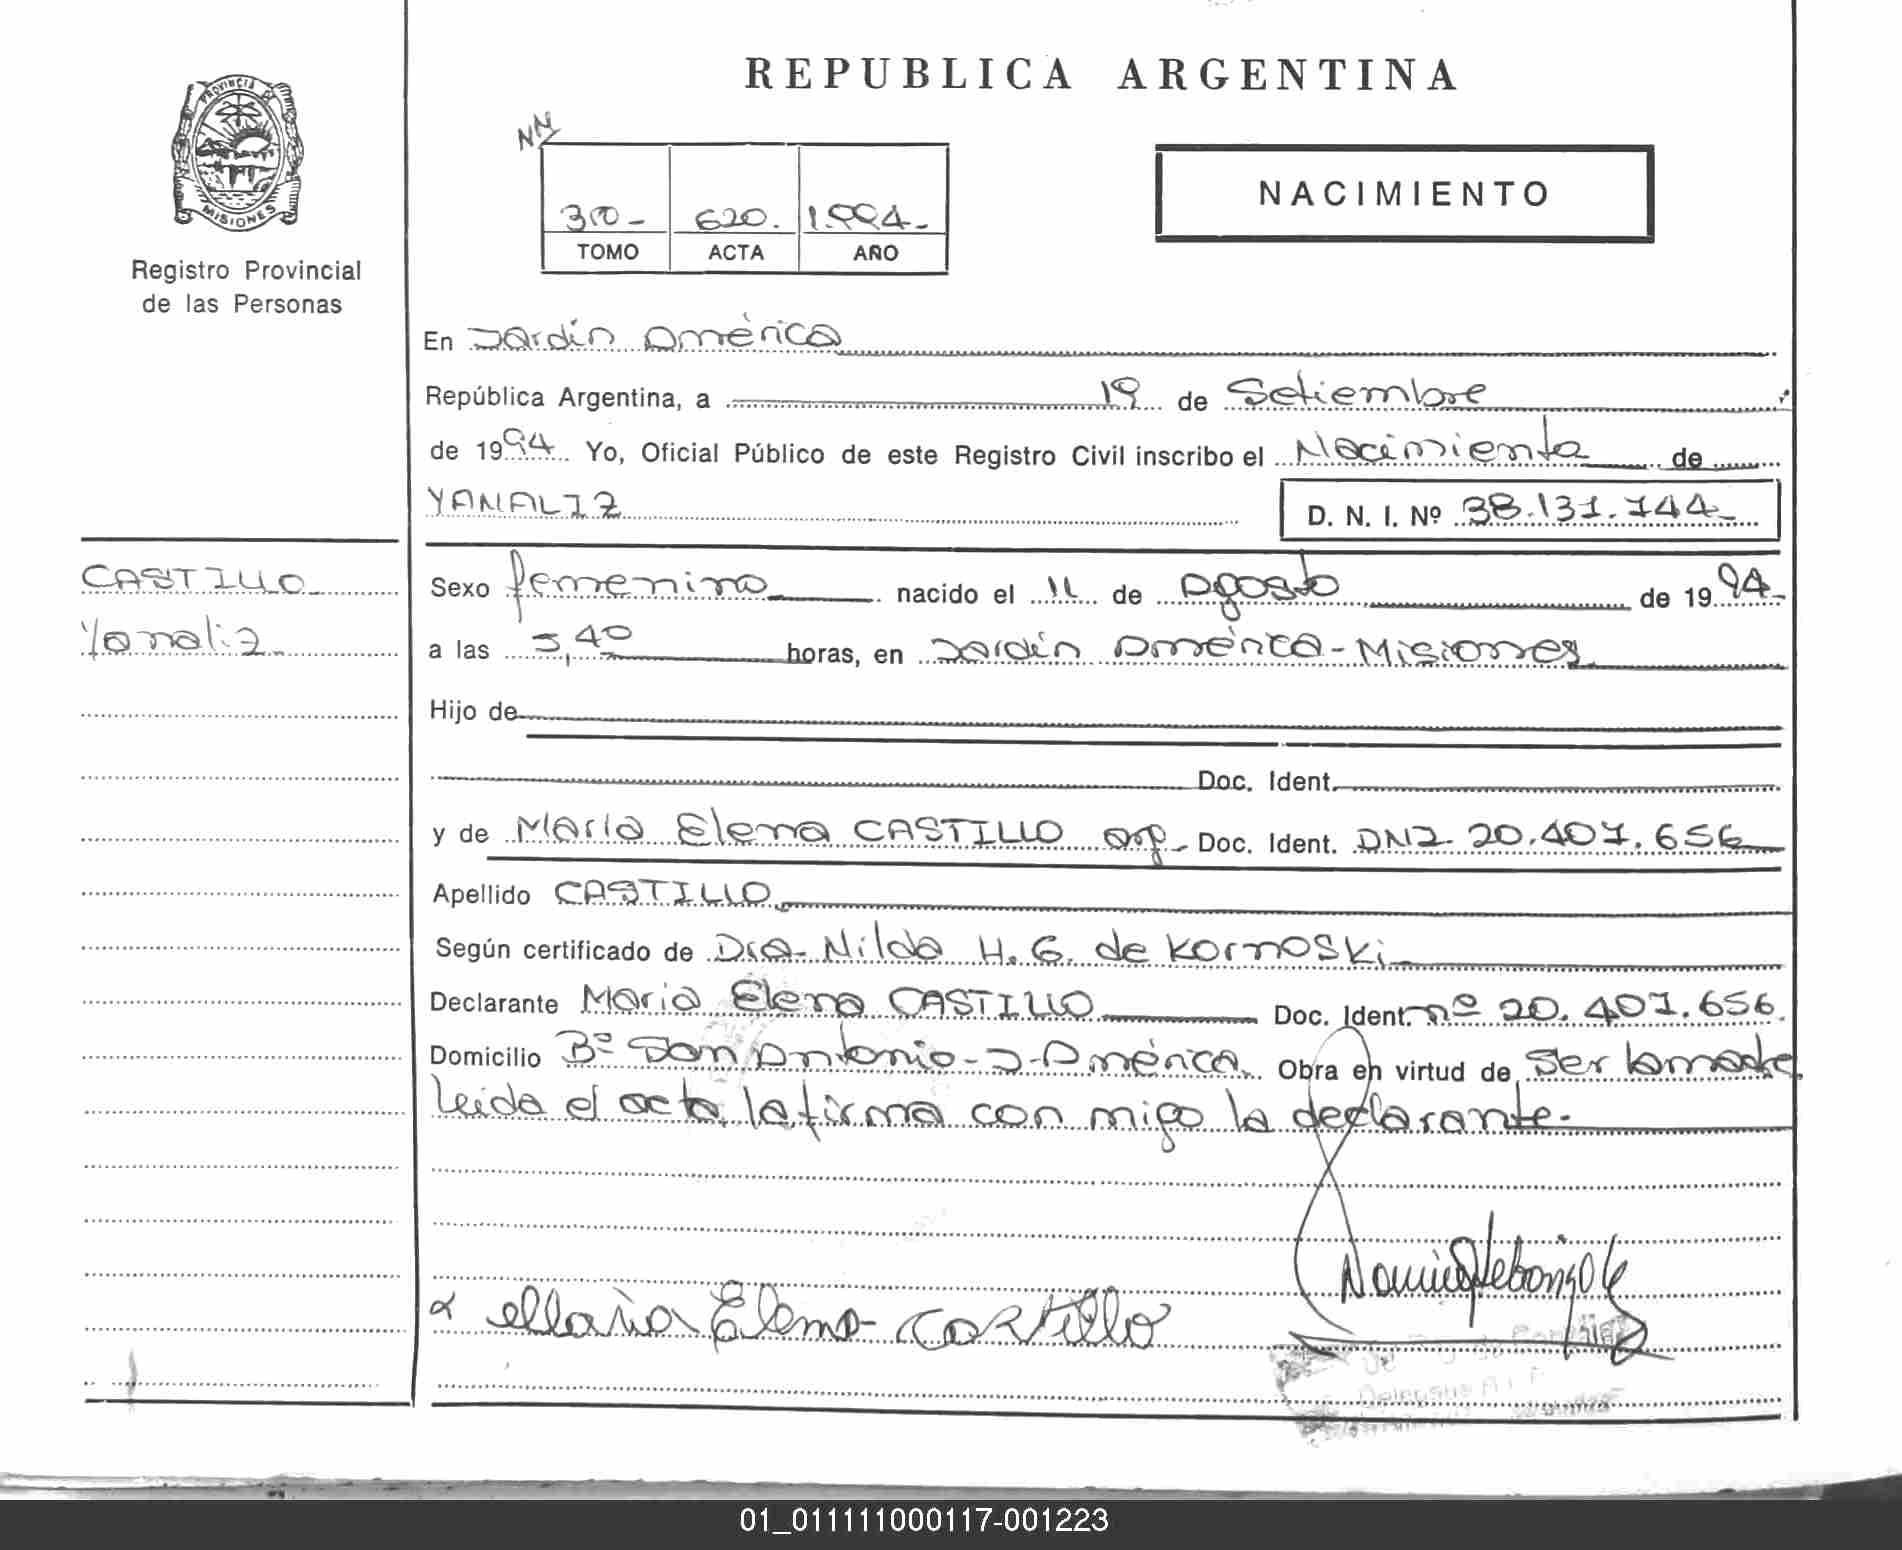 REPUBLICA ARGENTINA
PROVINCIA DE
MISIONES
Registro Provincial
de las Personas
NN
300- 620. 1.994-
TOMO ACTA AÑO
NACIMIENTO
En Jardín América
República Argentina, a 19 de Setiembre
de 1994 Yo, Oficial Público de este Registro Civil inscribo el Nacimiento de
YANALIZ D. N. I. Nº 38.131.744-
CASTILLO
Yanaliz
Sexo femenino nacido el 11 de Agosto de 1994-
a las 5,40 horas, en Jardín América-Misiones
Hijo de
Doc. Ident.
y de María Elena CASTILLO arg- Doc. Ident. DNI 20.407.656
Apellido CASTILLO
Según certificado de Dra- Nilda H. G. de Kornoski
Declarante María Elena CASTILLO Doc. Ident. nº 20.407.656
Domicilio Bº San Antonio-J-América. Obra en virtud de ser la madre
leida el acta la firma con migo la declarante-
Maria Elena Castillo
01_011111000117-001223